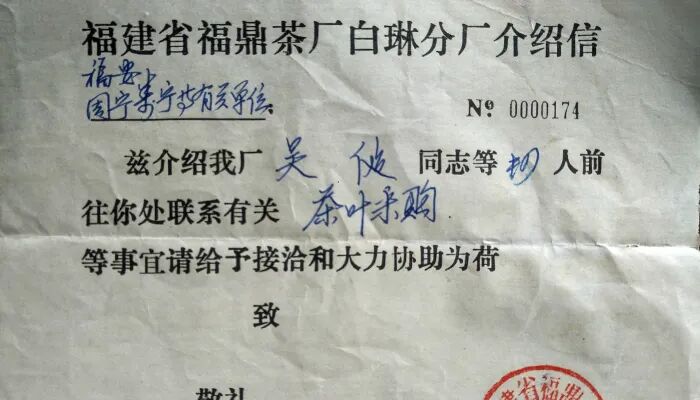 福建省福鼎茶厂白琳分厂介绍信
福安
周宁寿宁等有关单位
№ 0000174
兹介绍我厂 吴 同志等 人前
往你处联系有关 茶叶采购
等事宜请给予接洽和大力协助为荷
致
敬礼
建省福鼎